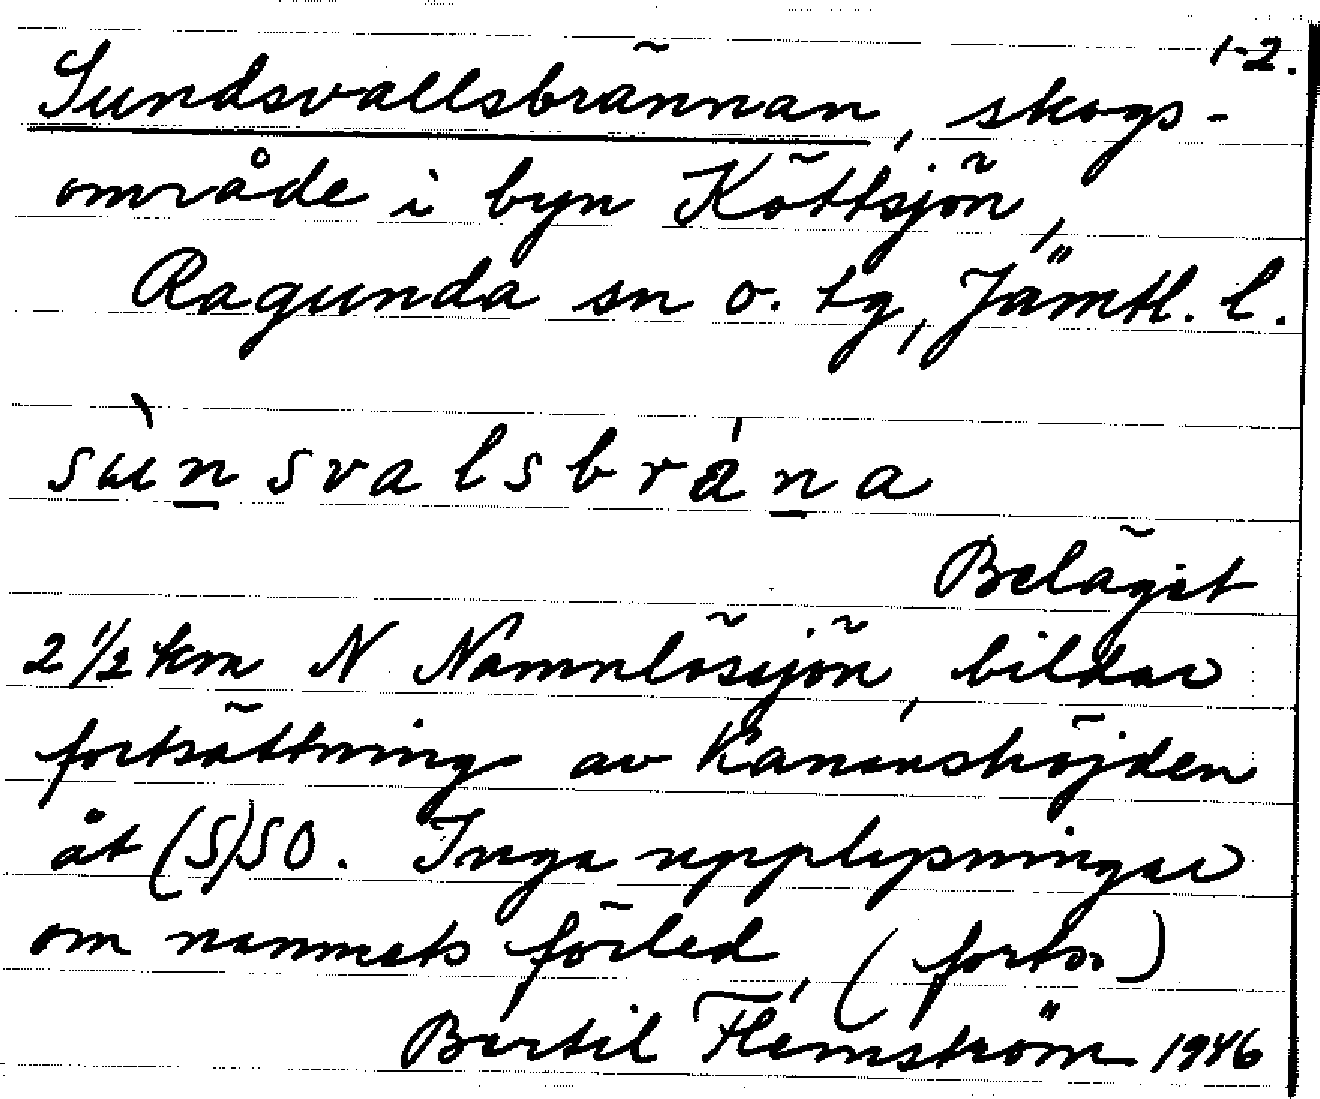 1-2.
Sundsvallsbrännan, skogs-
område i byn Köttsjön,
Ragunda sn o. tg, Jämtl. l.
sùnsvalsbrána
Beläget
2 1/2 km N Namnlösjön, bildar
fortsättning av Kananshöjden
åt (S)SO. Inga upplysningar
om namnets förled, (forts.)
Bertil Flemström 1946